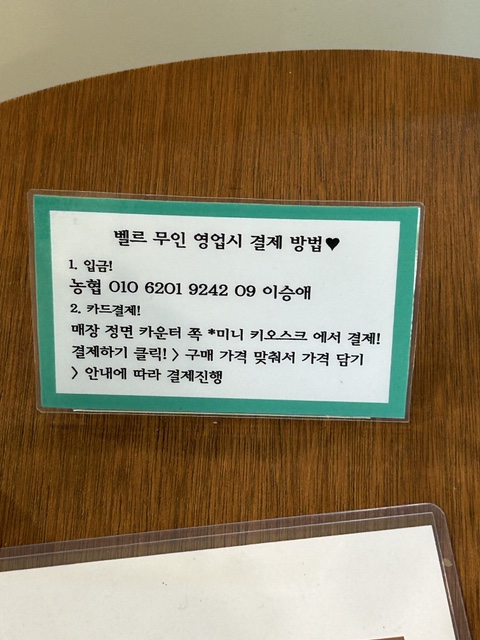 벨르 무인 영업시 결제 방법♥
1. 입금!
농협 010 6201 9242 09 이승애
2. 카드결제!
매장 정면 카운터 쪽 *미니 키오스크 에서 결제!
결제하기 클릭! > 구매 가격 맞춰서 가격 담기
> 안내에 따라 결제진행